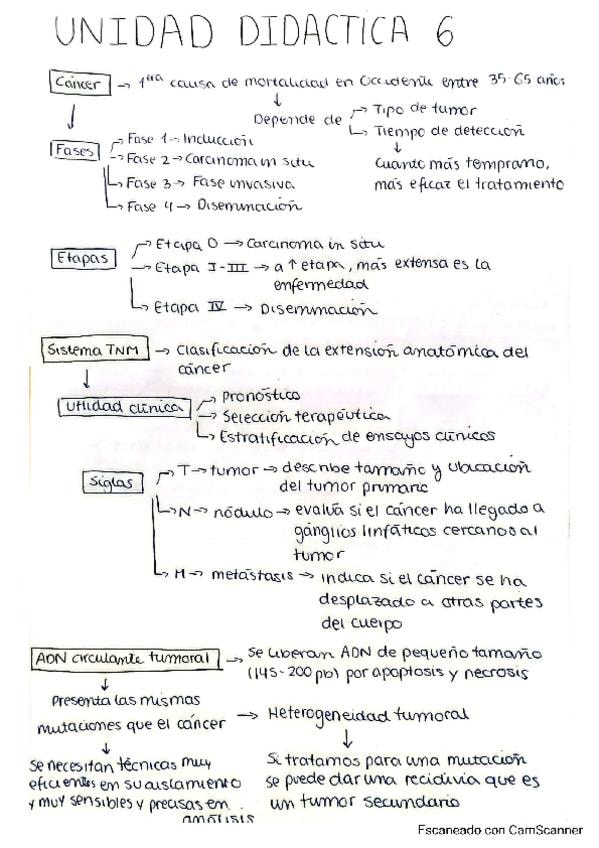 UNIDAD DIDACTICA 6
Cáncer → 1era causa de mortalidad en Occidente entre 35-65 años
Depende de → Tipo de tumor
→ Tiempo de detección
Cuanto más temprano,
más eficaz el tratamiento
Fases → Fase 1 → Inducción
→ Fase 2 → Carcinoma in situ
→ Fase 3 → Fase invasiva
→ Fase 4 → Diseminación
Etapas → Etapa 0 → Carcinoma in situ
→ Etapa I-III → a ↑ etapa, más extensa es la
enfermedad
→ Etapa IV → Diseminación
Sistema TNM → Clasificación de la extensión anatómica del
cáncer
Utilidad clínica → Pronóstico
→ Selección terapéutica
→ Estratificación de ensayos clínicos
Siglas → T → tumor → describe tamaño y ubicación
del tumor primario
→ N → nódulo → evalúa si el cáncer ha llegado a
gánglios linfáticos cercanos al
tumor
→ M → metástasis → indica si el cáncer se ha
desplazado a otras partes
del cuerpo
ADN circulante tumoral → Se liberan ADN de pequeño tamaño
(145-200 pb) por apoptosis y necrosis
Presenta las mismas
mutaciones que el cáncer → Heterogeneidad tumoral
Se necesitan técnicas muy
eficientes en su aislamiento
y muy sensibles y precisas en
análisis
Si tratamos para una mutación
se puede dar una recidivia que es
un tumor secundario
Escaneado con CamScanner